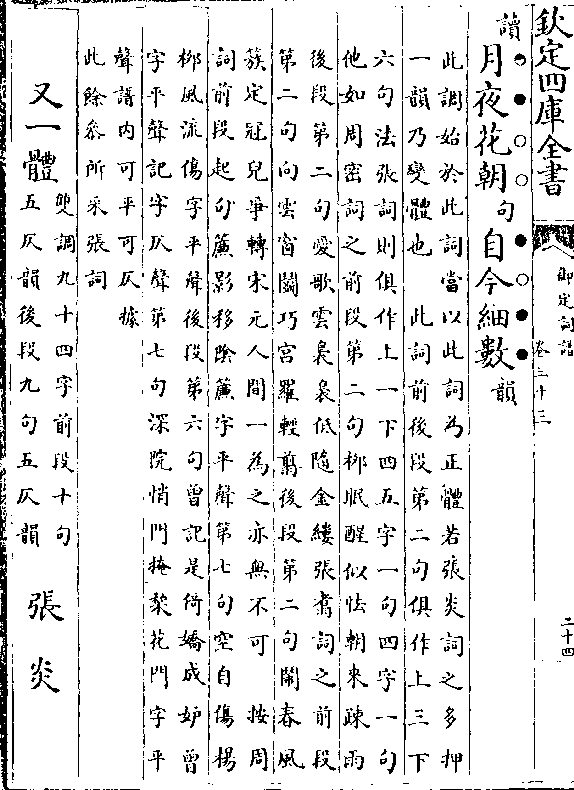 欽定四庫全書
御定詞譜
卷二十三
二十四
讀月夜花朝句自今細數韻
此調始於此詞當以此詞為正體若張炎詞之多押
一韻乃變體也　此詞前後段第二句俱作上三下
六句法張詞則俱作上一下四五字一句四字一句
他如周密詞之前段第二句栁眠醒似怯朝來踈雨
後段第二句愛歌雲裊裊低隨金縷張翥詞之前段
第二句向雲窗鬭巧宫羅輕翦後段第二句閙春風
簇定冠兒爭轉宋元人間一為之亦無不可　按周
詞前段起句簾影移隂簾字平聲第七句空自傷楊
栁風流傷字平聲後段第六句曾記是倚嬌成妒曾
字平聲記字仄聲第七句深院悄門掩棃花門字平
聲譜内可平可仄據
此餘叅所采張詞
又一體雙調九十四字前段十句
五仄韻後段九句五仄韻
張炎